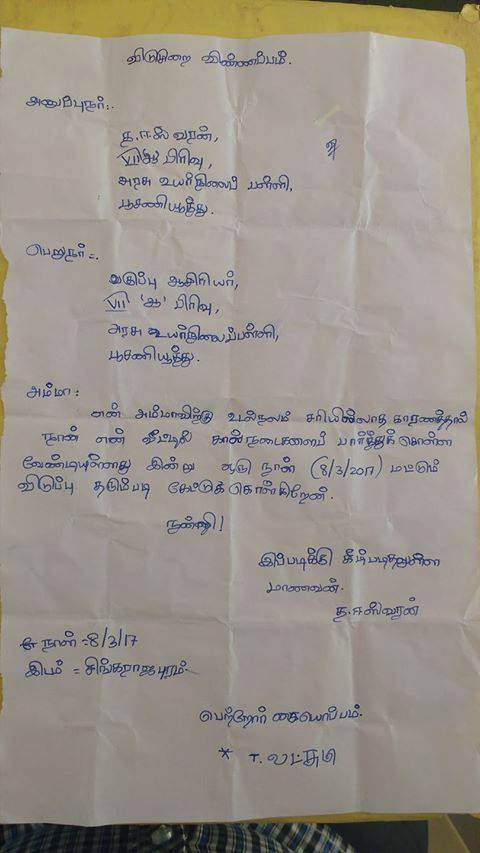 விடுமுறை விண்ணப்பம்.
அனுப்புநர்:.
த.ஈஸ்வரன்,
VII 'ஆ' பிரிவு,
அரசு உயர்நிலைப் பள்ளி,
பூசணியூத்து.
பெறுநர்:-.
வகுப்பு ஆசிரியர்,
VII 'ஆ' பிரிவு,
அரசு உயர்நிலைப்பள்ளி,
பூசணியூத்து.
அம்மா:
என் அம்மாவிற்கு உடல்நலம் சரியில்லாத காரணத்தால்
நான் என் வீட்டில் கால்நடைகளைப் பார்த்துக் கொள்ள
வேண்டியுள்ளது இன்று ஒரு நாள் (8/3/2017) மட்டும்
விடுப்பு தரும்படி கேட்டுக் கொள்கிறேன்.
நன்றி!
இப்படிக்கு கீழ்படிதலுள்ள
மாணவன்.
த.ஈஸ்வரன்
நாள் = 8/3/17
இடம் = சிங்கராஜபுரம்.
பெற்றோர் கையொப்பம்.
* T. லட்சுமி